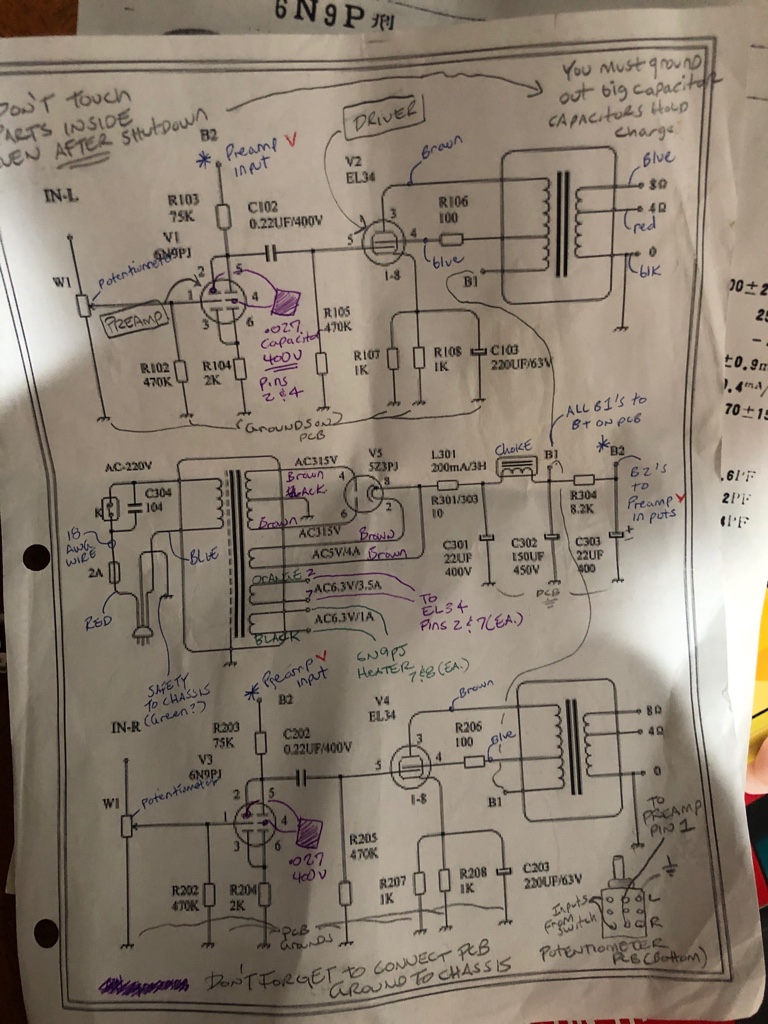 6N9P 刑
DON'T TOUCH
PARTS INSIDE
EVEN AFTER SHUTDOWN
You must ground
out big capacitor
CAPACITORS HOLD
charge
DRIVER
B2
* Preamp V
input
V2
EL34
Brown
Blue
IN-L
R103
75K
C102
0.22UF/400V
R106
100
8Ω
4Ω
red
0
blk
V1
6N9PJ
W1
Potentiometer
PREAMP
1
2
5
4
3
6
5
3
4
blue
1-8
B1
.027
Capacitor
400V
Pins
2 & 4
R105
470K
R102
470K
R104
2K
R107
1K
R108
1K
C103
220UF/63V
(GROUNDS ON
PCB
ALL B1'S to
B+ ON PCB
AC-220V
AC315V
V5
5Z3PJ
L301
200mA/3H
CHOKE
B1
* B2
B2'S
to
Preamp V
inputs
K
C304
104
Brown
BLACK
Brown
AC315V
4
6
8
2
R301/303
10
R304
8.2K
18
AWG
WIRE
2A
BLUE
RED
Brown
AC5V/4A
Brown
C301
22UF
400V
C302
150UF
450V
C303
22UF
400
+
PCB
ORANGE 2
AC6.3V/3.5A
7
AC6.3V/1A
BLACK
TO
EL34
Pins 2 & 7 (EA.)
6N9PJ
HEATER
7 & 8 (EA.)
SAFETY
TO CHASSIS
(Green?)
* Preamp V
input
B2
IN-R
R203
75K
C202
0.22UF/400V
V4
EL34
Brown
R206
100
Blue
8Ω
4Ω
0
V3
6N9PJ
W1
Potentiometer
1
2
5
4
3
6
5
3
4
1-8
B1
.027
400V
R205
470K
R202
470K
R204
2K
R207
1K
R208
1K
C203
220UF/63V
TO
PREAMP
PIN 1
Inputs
From
Switch
L
R
POTENTIOMETER
PCB (Bottom)
PCB
Grounds
DON'T FORGET TO CONNECT PCB
GROUND TO CHASSIS